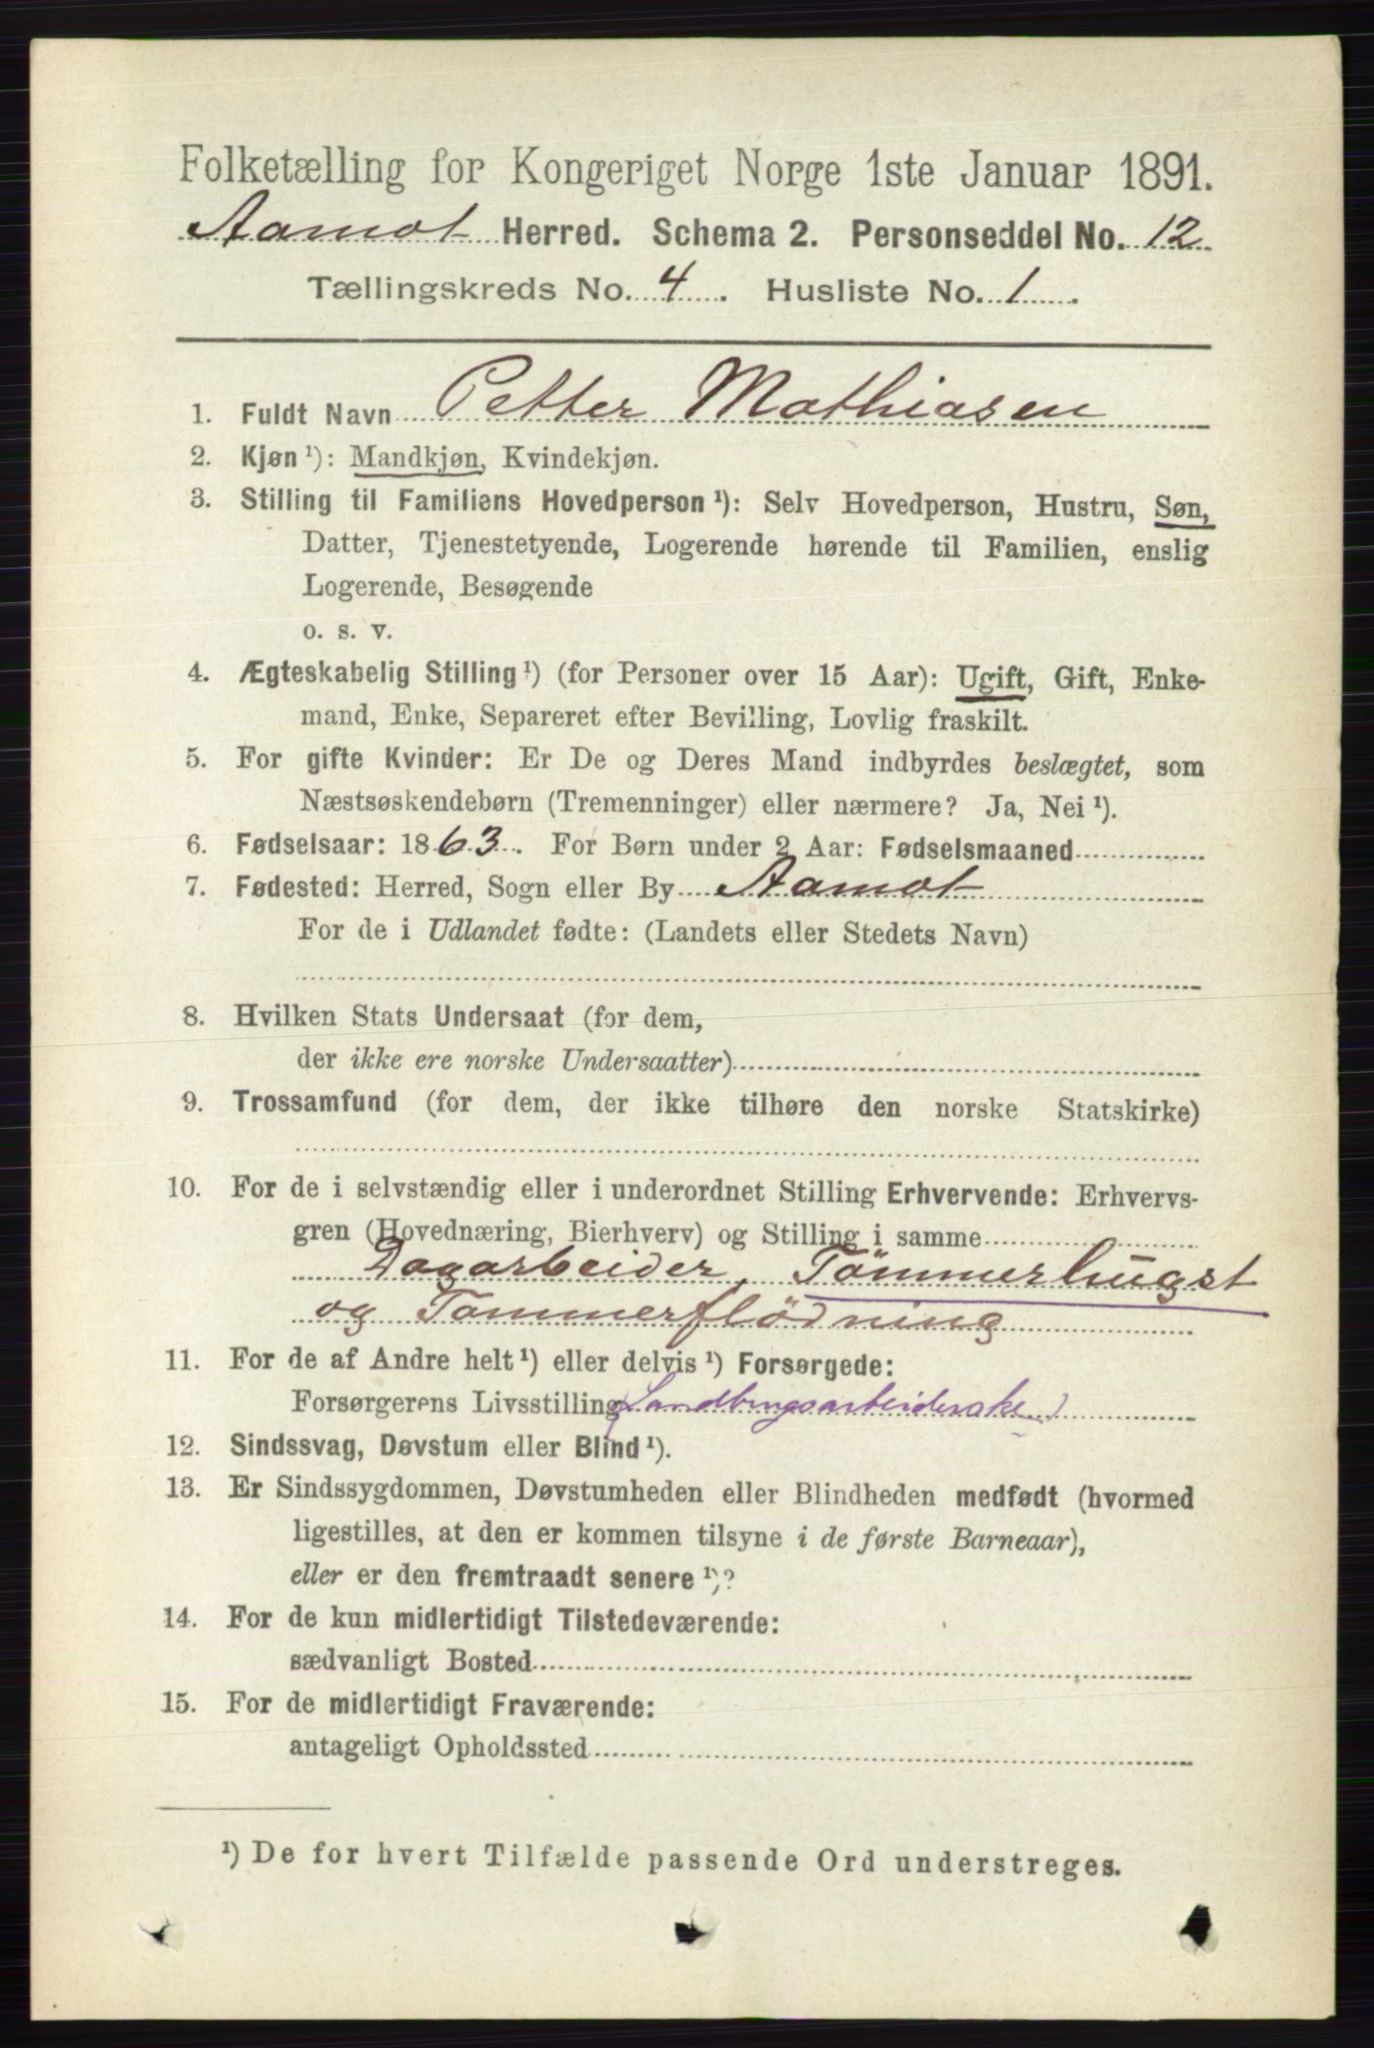 Folketælling for Kongeriget Norge 1ste Januar 1891.
Aamot Herred. Schema 2. Personseddel No. 12
Tællingskreds No. 4. Husliste No. 1.
1. Fuldt Navn Petter Mathiasen
2. Kjøn ¹): Mandkjøn, Kvindekjøn.
3. Stilling til Familiens Hovedperson ¹): Selv Hovedperson, Hustru, Søn,
Datter, Tjenestetyende, Logerende hørende til Familien, enslig
Logerende, Besøgende
o. s. v.
4. Ægteskabelig Stilling ¹) (for Personer over 15 Aar): Ugift, Gift, Enke-
mand, Enke, Separeret efter Bevilling, Lovlig fraskilt.
5. For gifte Kvinder: Er De og Deres Mand indbyrdes beslægtet, som
Næstsøskendebørn (Tremenninger) eller nærmere? Ja, Nei ¹).
6. Fødselsaar: 1863. For Børn under 2 Aar: Fødselsmaaned
7. Fødested: Herred, Sogn eller By Aamot
For de i Udlandet fødte: (Landets eller Stedets Navn)
8. Hvilken Stats Undersaat (for dem,
der ikke ere norske Undersaatter)
9. Trossamfund (for dem, der ikke tilhøre den norske Statskirke)
10. For de i selvstændig eller i underordnet Stilling Erhvervende: Erhvervs-
gren (Hovednæring, Bierhverv) og Stilling i samme
Dagarbeider, Tömmerhugst
og Tömmerflödning
11. For de af Andre helt ¹) eller delvis ¹) Forsørgede:
Forsørgerens Livsstilling (Landbrugsarbeiderske)
12. Sindssvag, Døvstum eller Blind ¹).
13. Er Sindssygdommen, Døvstumheden eller Blindheden medfødt (hvormed
ligestilles, at den er kommen tilsyne i de første Barneaar),
eller er den fremtraadt senere ¹)?
14. For de kun midlertidigt Tilstedeværende:
sædvanligt Bosted
15. For de midlertidigt Fraværende:
antageligt Opholdssted
¹) De for hvert Tilfælde passende Ord understreges.